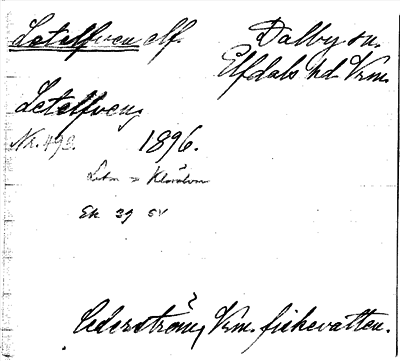 Letelfven elf. Dalby sn.
Elfdals hd Vrm.
Letelfven,
Nr. 493. 1896.
Letn = Klarälven
Ek 39 SV
Cederström, Vrm. fiskevatten.